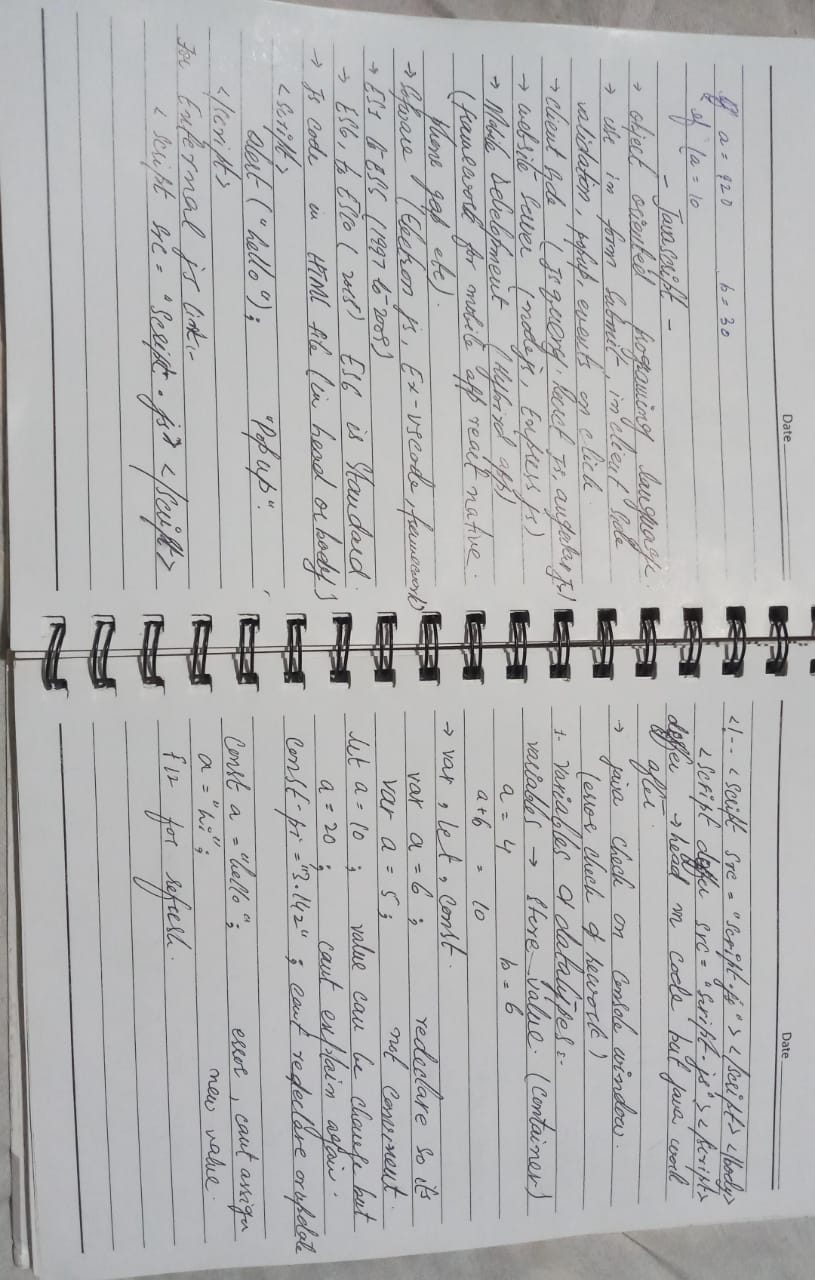 Date
a = 420 b = 30
if (a = 10
- Javascript -
→ object oriented programing language.
→ use in form submit, in client side
validation, popup, events on click.
→ client side (jsquery, react js, angular js)
→ website server (nodejs, Express js)
→ Mobile Development (Hybrid app)
(framework for mobile app react native.
phone gap etc).
→ Software (Electron js, Ex-Vscode, framework)
→ ES1 to ES5 (1997 to 2009)
→ ES6, to ES10 (2018) ES6 is Standard.
→ Js code in HTML file (in head or body)
<script>
alert ("hello"); "Pop up".
</script>
For External js link:-
<script src = "Script.js"> </script>
Date
<!-- <script src = "script.js"> </script> </body>
<script deffer src = "script.js"> </script>
deffer → head m code but java work
after.
→ java check on console window.
(error check & rework)
1. Variables & datatypes :-
variables → store value. (Container)
a = 4 b = 6
a+b = 10
→ var, let, const.
var a = 6; redeclare so its
var a = 5; not convinent.
let a = 10; value can be change but
a = 20; cant explain again.
const pi = "3.142"; cant redeclare or update
Const a = "hello"; error, cant assign
a = "hi"; new value.
f12 for refresh.